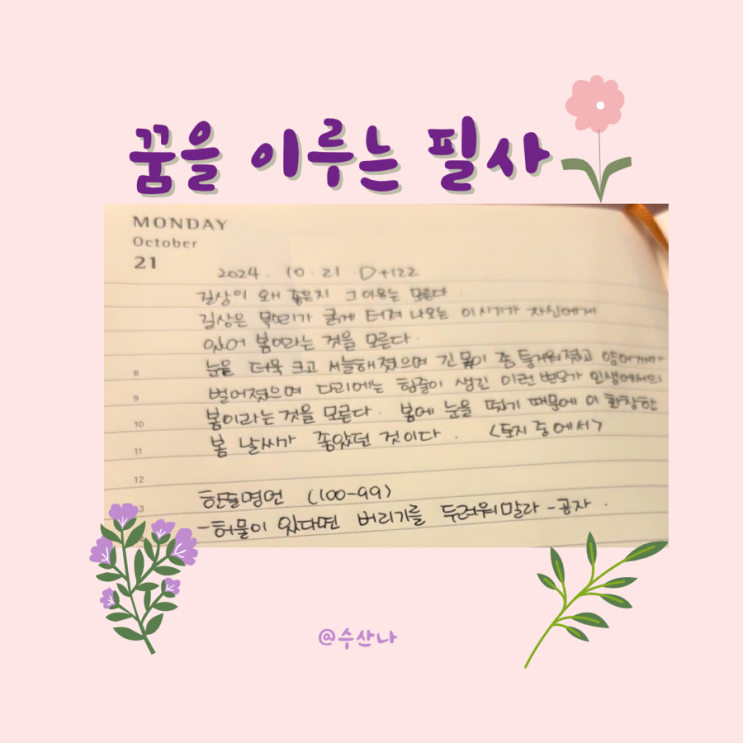 꿈을 이루는 필사
MONDAY
October
21
2024. 10. 21 D+122
길상이 왜 좋은지 그 이유는 모른다.
길상은 목소리가 굵게 터져 나오는 이 시기가 자신에게
있어 봄이라는 것을 모른다.
눈은 더욱 크고 서늘해졌으며 긴 몸이 좀 둥거워졌고 어깨가
8
벌어졌으며 다리에는 힘줄이 생긴 이런 변모가 인생에서의
9
봄이라는 것을 모른다. 봄에 눈을 떴기 때문에 이 화창한
10
봄 날씨가 좋았던 것이다. <토지 중에서>
11
12
한줄명언 (100-99)
-허물이 있다면 버리기를 두려워말라 -공자.
@수산나